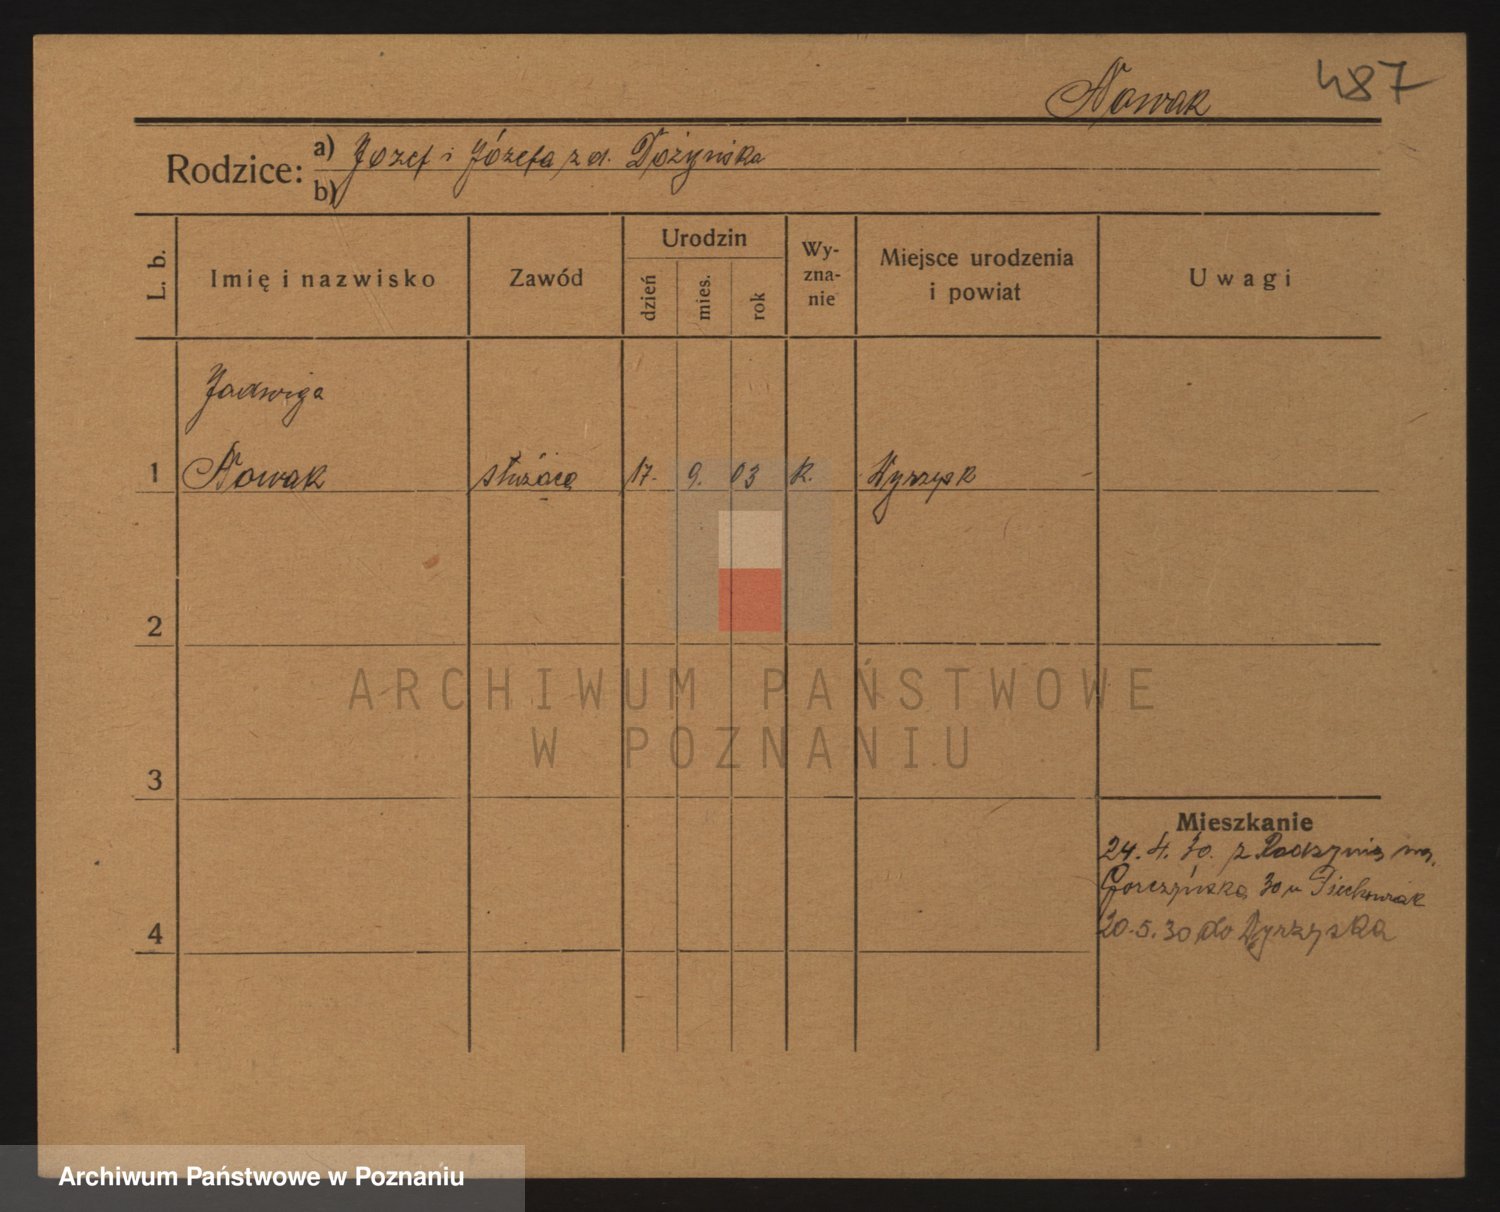 Nowak 487
Rodzice: a) Józef i Józefa z d. Dożyńska
b)
L. b. Imię i nazwisko Zawód Urodzin dzień mies. rok Wy-zna-nie Miejsce urodzenia i powiat Uwagi
Jadwiga
1 Nowak służąca 17. 9. 03 k. Wyrzysk
2
ARCHIWUM PAŃSTWOWE
W POZNANIU
3
Mieszkanie
24. 4. 30. z
Gorczyńska 30 u Piechowiak
4
20.5.30 do Wyrzyska
Archiwum Państwowe w Poznaniu